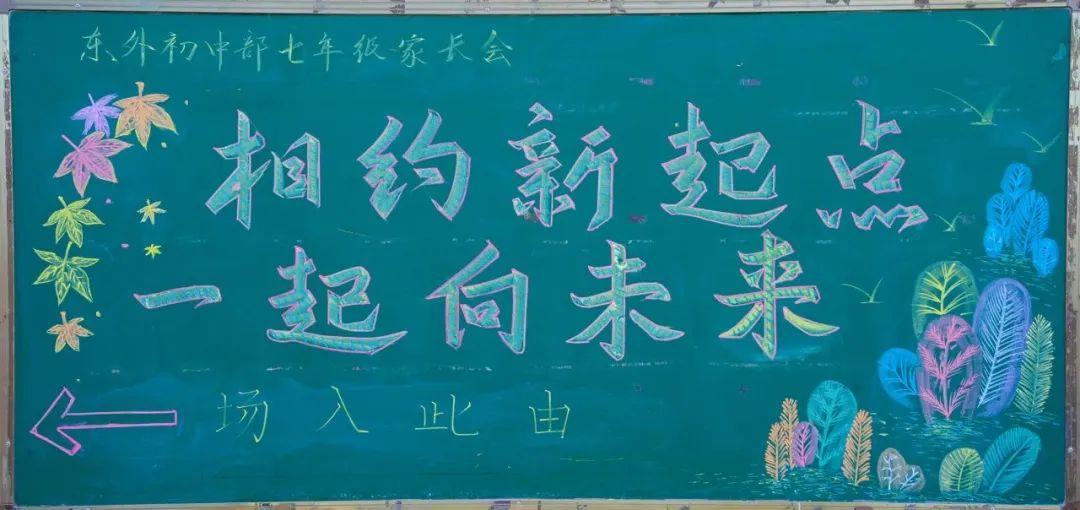 东外初中部七年级家长会
相约新起点
一起向未来
场入此由